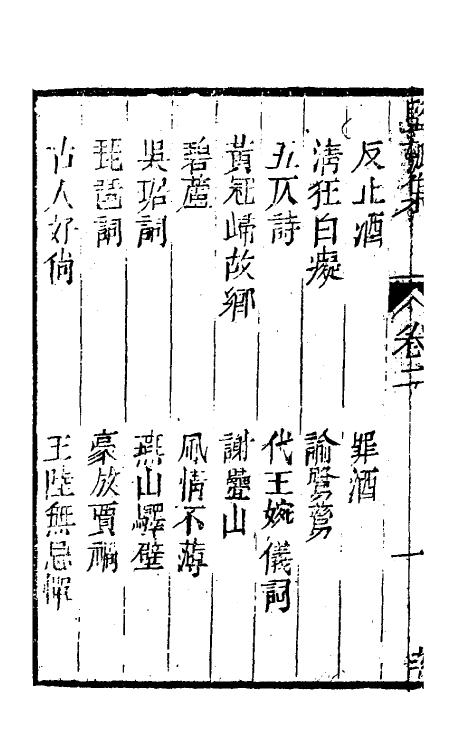 堅瓠集 卷二 一
反止酒 罪酒
清狂白癡 諭
五仄詩 代王婉儀詞
黃冠歸故鄉 謝疊山
碧蘆 風情不薄
吳玿詞 燕山驛壁
琵琶詞 豪放賈禍
古人好倘 王陸無忌憚